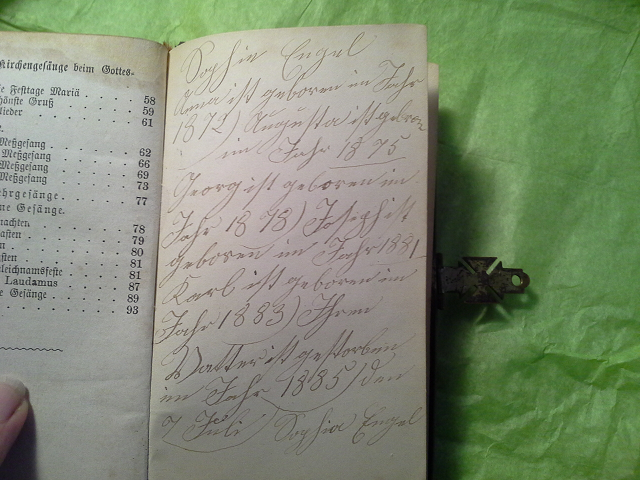 Kirchengesänge beim Gottes-
e Festtage Mariä . . . . 58
hönste Gruß . . . . 59
lieder . . . . 61
Meßgesang . . . . 62
Meßgesang . . . . 66
Meßgesang . . . . 69
Meßgesang . . . . 73
hrgesänge . . . . 77
ne Gesänge.
nachten . . . . 78
asten . . . . 79
n . . . . 80
sten . . . . 81
leichnamsfeste . . . . 81
Laudamus . . . . 87
e Gesänge . . . . 89
. . . . 93
Sophie Engel
Anna ist geboren im Jahr
1872) Augusta ist gebor
im Jahr 1875
Georg ist geboren im
Jahr 1878) Joseph ist
geboren im Jahr 1881
Karl ist geboren im
Jahr 1883) Ihren
Watter ist gestorben
im Jahr 1885) den
7 Juli Sophia Engel